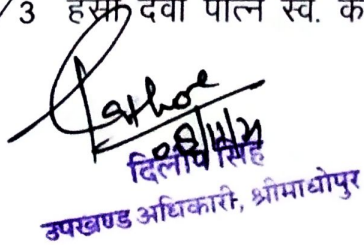 /3 हंसा देवी पत्नि स्व. क
Rathore
08/11/21
दिलीप सिंह
उपखण्ड अधिकारी, श्रीमाधोपुर